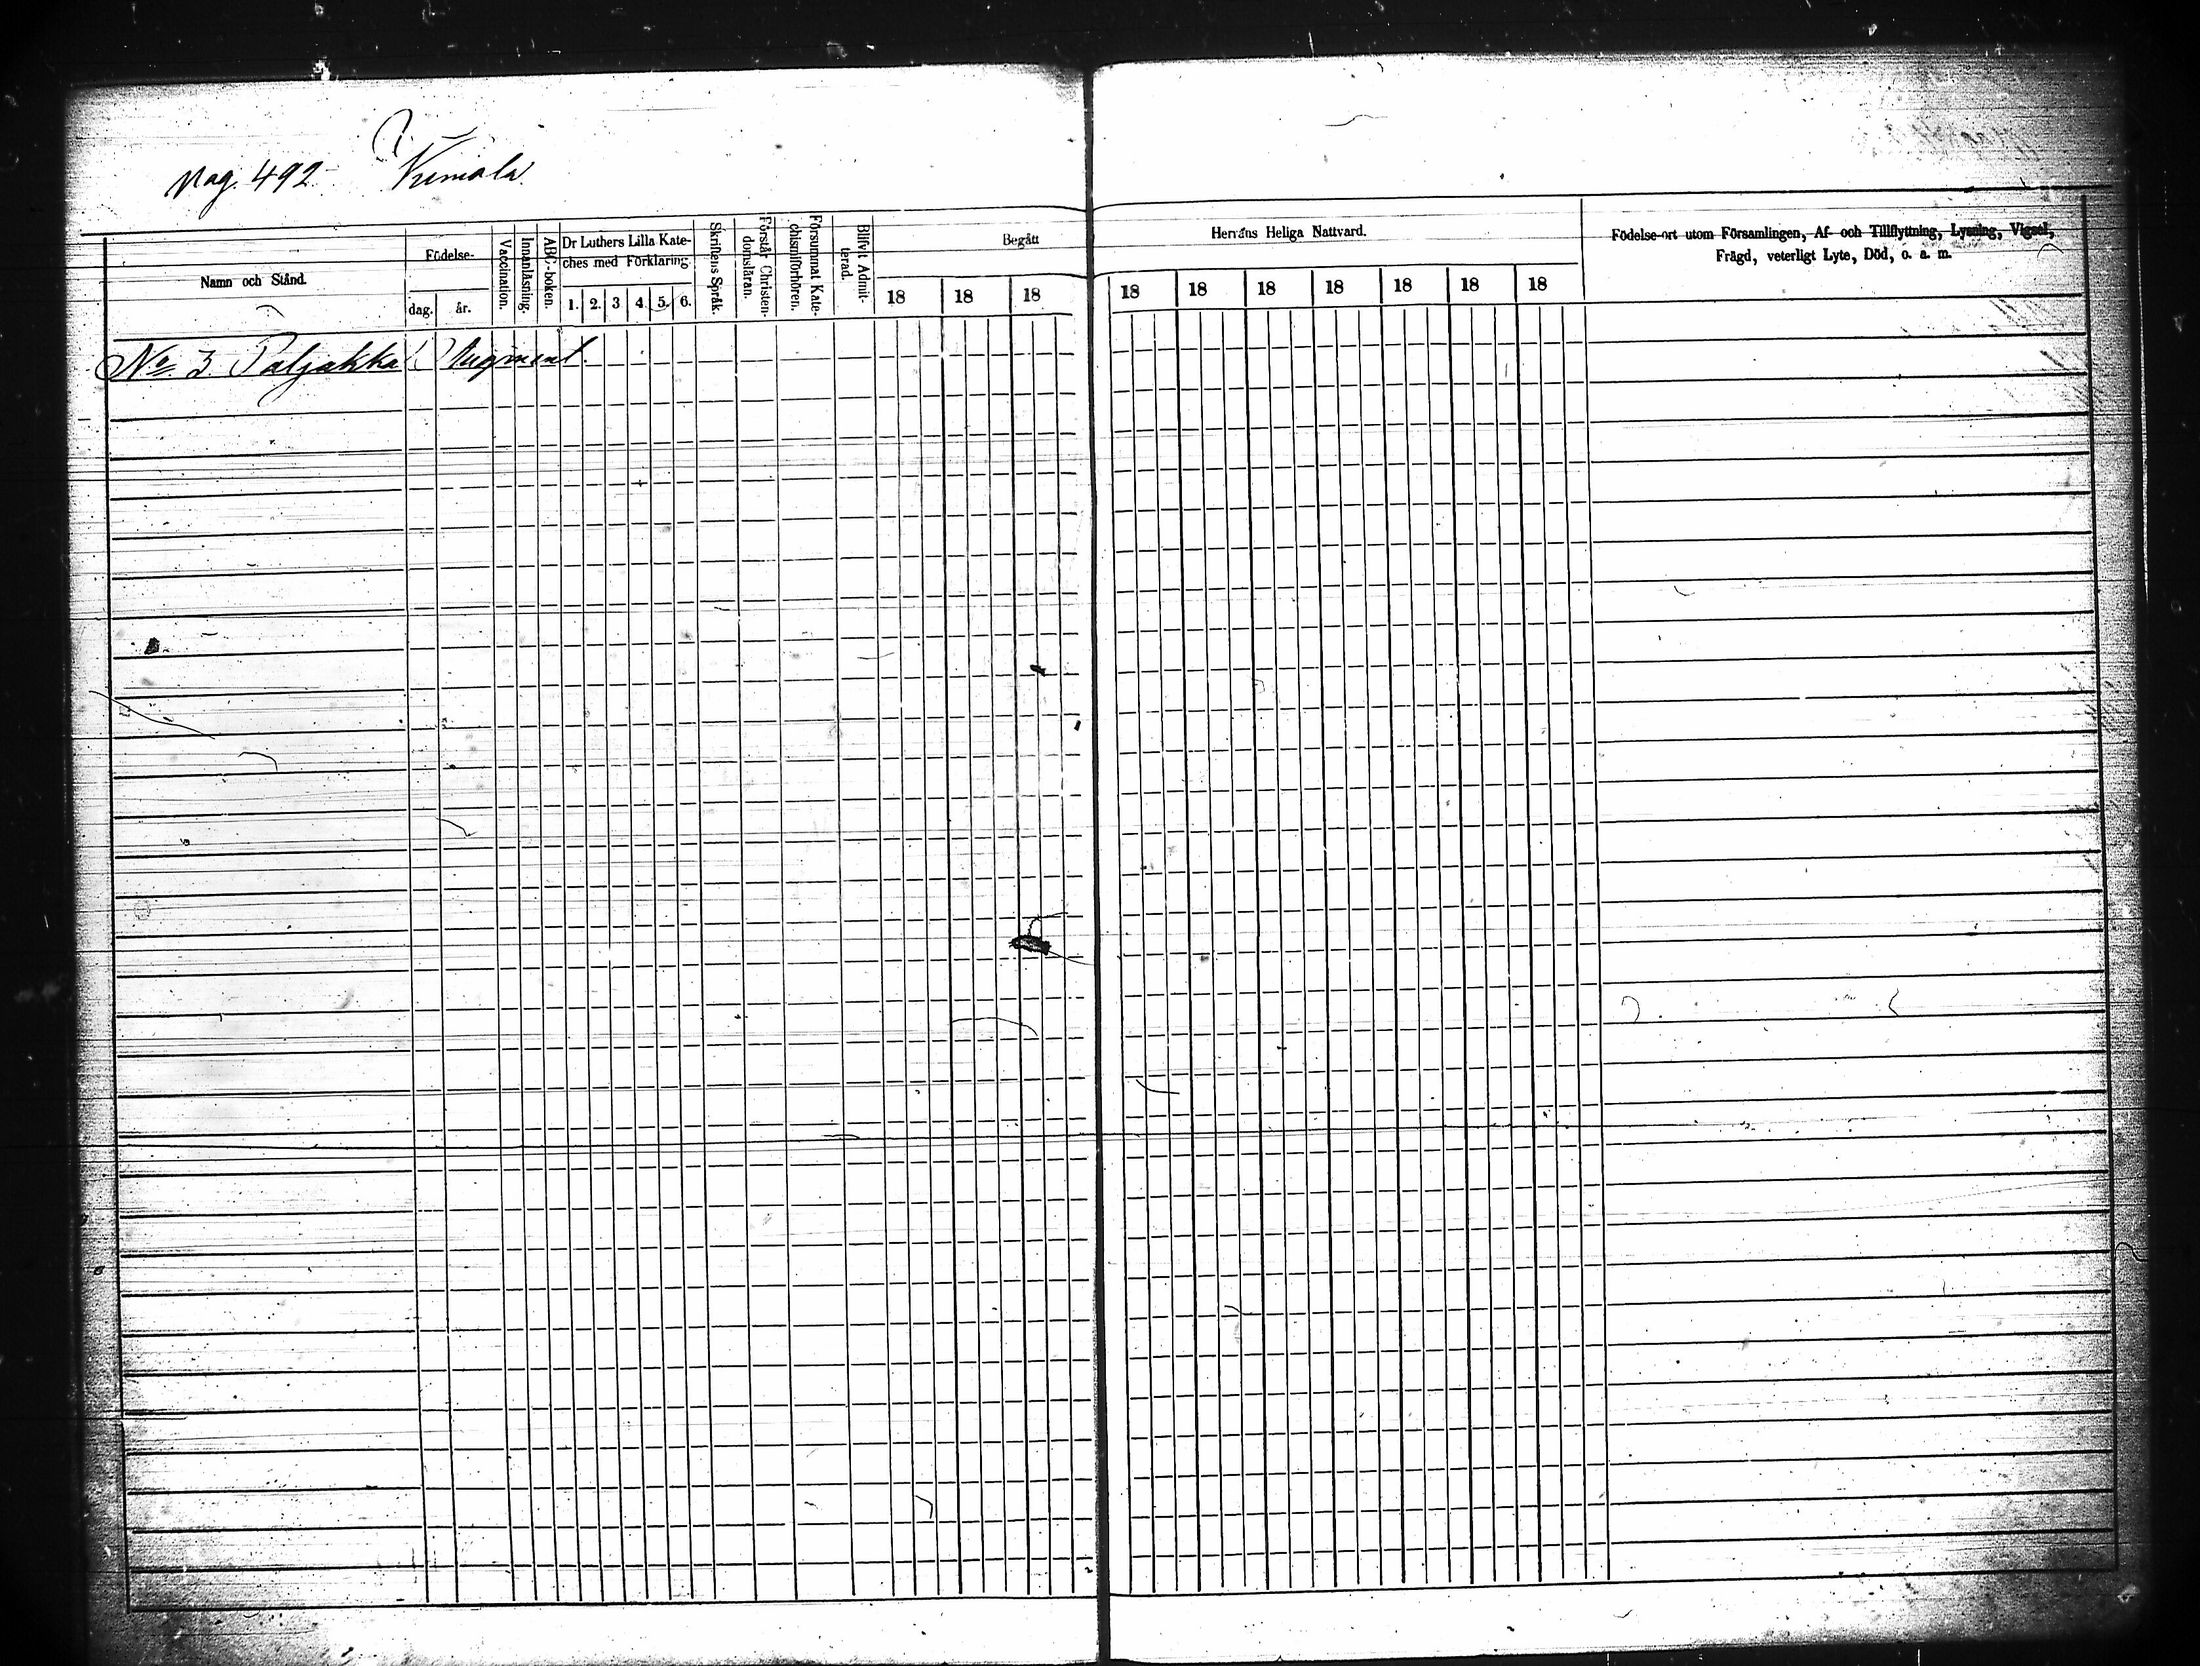 pag. 492
Namn och Stånd.
Födelse-
dag.
år.
Vaccination.
Innanläsning.
ABC-boken.
Dr Luthers Lilla Kate-
ches med Förklaring
1. 2. 3 4. 5. 6.
Skriftens Språk.
Förstår Christen-
domsläran.
Försummat Kate-
chismiförhören.
Blifvit Admit-
terad.
Begått Herrans Heliga Nattvard.
18 18 18 18 18 18 18 18 18 18
Födelse-ort utom Församlingen, Af- och Tillflyttning, Lysning, Vigsel,
Frägd, veterligt Lyte, Död, o. a. m.
No. 3 Paljakka